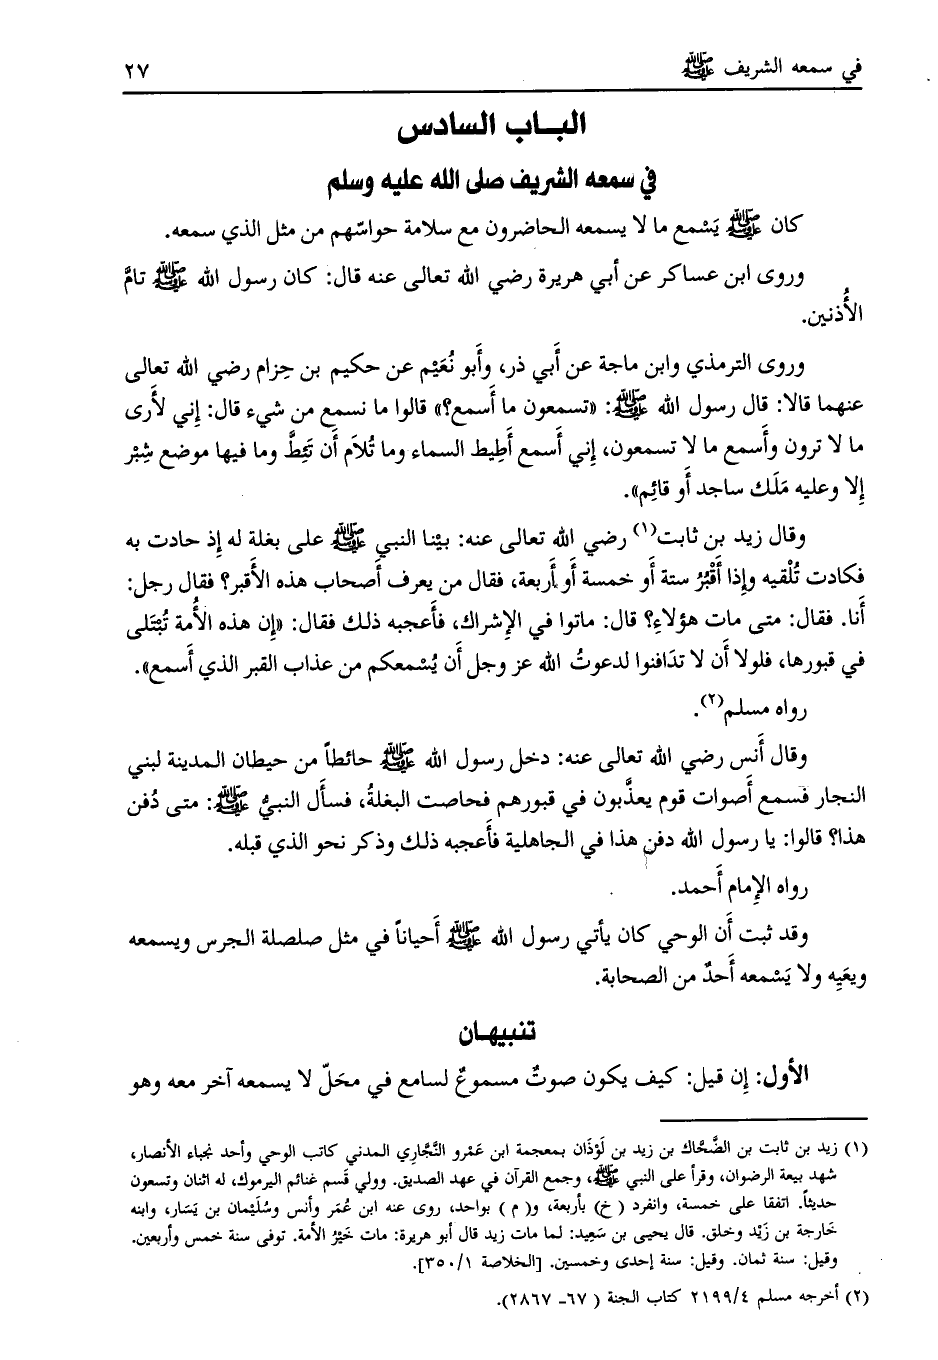 في سمعه الشريف ﷺ ٢٧
الباب السادس
في سمعه الشريف صلى الله عليه وسلم
كان ﷺ يَسْمع ما لا يسمعه الحاضرون مع سلامة حواسّهم من مثل الذي سمعه.
وروى ابن عساكر عن أبي هريرة رضي الله تعالى عنه قال: كان رسول الله ﷺ تامَّ
الأُذنين.
وروى الترمذي وابن ماجة عن أَبي ذر، وأَبو نُعَيْم عن حكيم بن حِزام رضي الله تعالى
عنهما قالا: قال رسول الله ﷺ: «تسمعون ما أَسمع؟» قالوا ما نسمع من شيء قال: إِني لأَرى
ما لا ترون وأَسمع ما لا تسمعون، إِني أَسمع أَطِيط السماء وما تُلاَم أَن تَئِطَّ وما فيها موضع شِبْر
إِلا وعليه مَلَك ساجد أَو قائِم».
وقال زيد بن ثابت(١) رضي الله تعالى عنه: بيْنا النبي ﷺ على بغلة له إِذ حادت به
فكادت تُلْقيه وإِذا أَقْبُرُ ستة أَو خمسة أَو أَربعة، فقال من يعرف أَصحاب هذه الأَقبر؟ فقال رجل:
أَنا. فقال: متى مات هؤلاءِ؟ قال: ماتوا في الإِشراك، فأَعجبه ذلك فقال: «إِن هذه الأُمة تُبْتَلى
في قبورها، فلولا أَن لا تدَافنوا لدعوتُ الله عز وجل أَن يُسْمعكم من عذاب القبر الذي أَسمع».
رواه مسلم(٢).
وقال أَنس رضي الله تعالى عنه: دخل رسول الله ﷺ حائطاً من حيطان المدينة لبني
النجار فسمع أَصوات قوم يعذَّبون في قبورهم فحاصت البغلةُ، فسأَل النبيُّ ﷺ: متى دُفن
هذا؟ قالوا: يا رسول الله دفن هذا في الجاهلية فأَعجبه ذلك وذكر نحو الذي قبله.
رواه الإِمام أَحمد.
وقد ثبت أَن الوحي كان يأتي رسول الله ﷺ أَحياناً في مثل صلصلة الجرس ويسمعه
ويعَيِه ولا يَسْمعه أَحدٌ من الصحابة.
تنبيهان
الأَول: إِن قيل: كيف يكون صوتٌ مسموعٌ لسامع في محَلّ لا يسمعه آخر معه وهو
(١) زيد بن ثابت بن الضَّحَّاك بن زيد بن لَوْذَان بمعجمة ابن عَمْرو النَّجَّاري المدني كاتب الوحي وأحد نجباء الأنصار،
شهد بيعة الرضوان، وقرأ على النبي ﷺ، وجمع القرآن في عهد الصديق. وولي قَسم غنائم اليرموك، له اثنان وتسعون
حديثاً. اتفقا على خمسة، وانفرد (خ) بأربعة، و(م) بواحد، روى عنه ابن عُمَر وأنس وسُلَيْمان بن يَسَار، وابنه
خَارجة بن زَيْد وخلق. قال يحيى بن سَعِيد: لما مات زيد قال أبو هريرة: مات خَيْرُ الأمة. توفى سنة خمس وأربعين.
وقيل: سنة ثمان. وقيل: سنة إحدى وخمسين. [الخلاصة ١/ ٣٥٠].
(٢) أخرجه مسلم ٢١٩٩/٤ كتاب الجنة (٦٧- ٢٨٦٧).